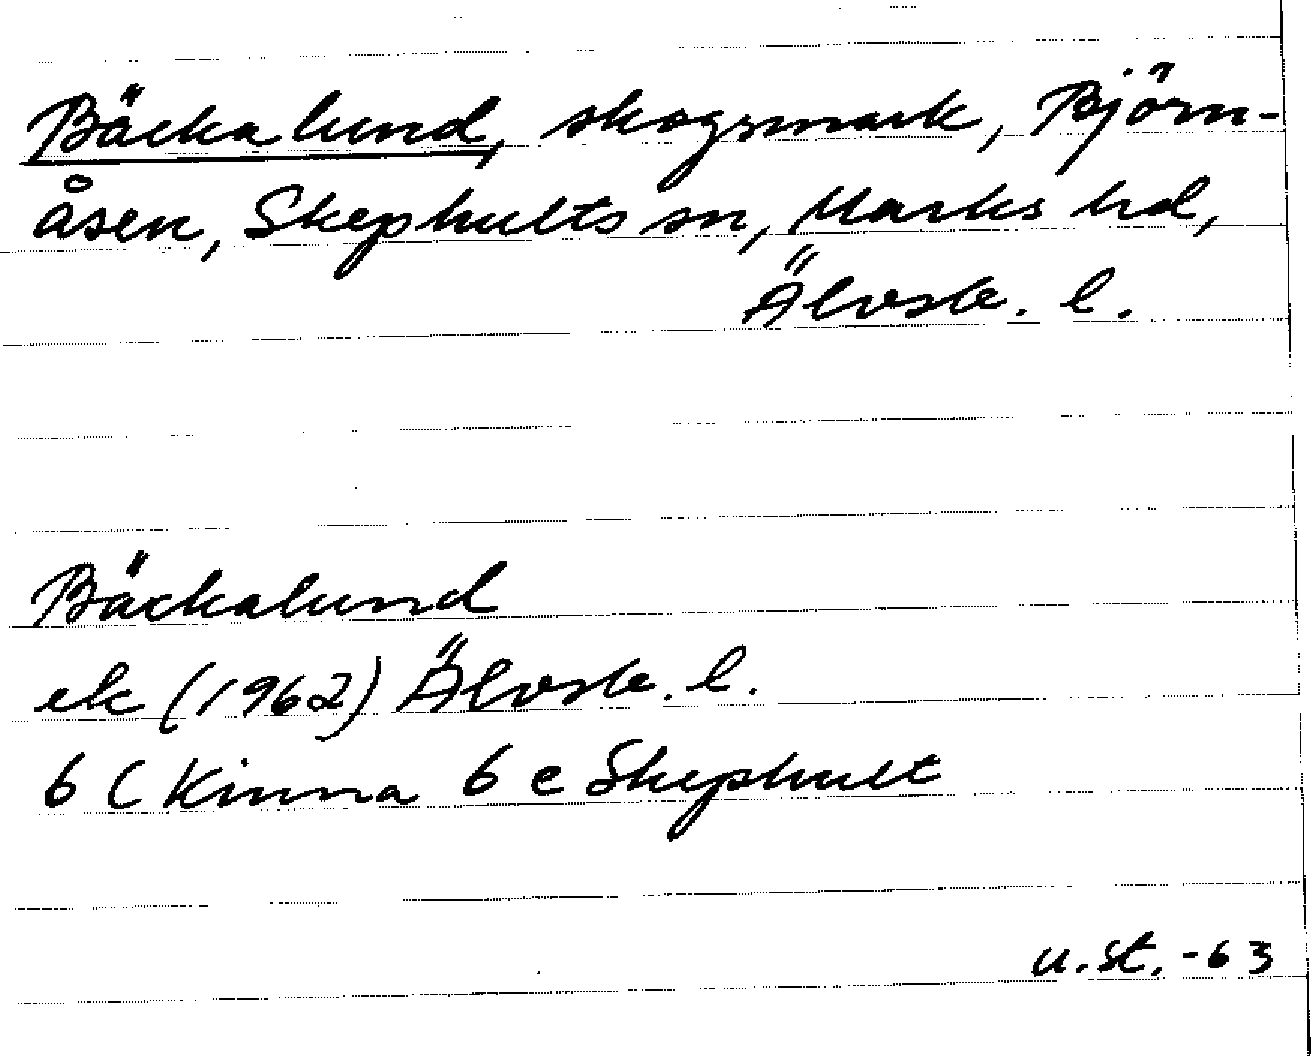 Bäckalund, skogsmark, Björn-
åsen, Skephults sn, Marks hd,
Älvsb. l.
Bäckalund
ek (1962) Älvsb. l.
6 C Kinna 6 e Skephult
u.st. -63